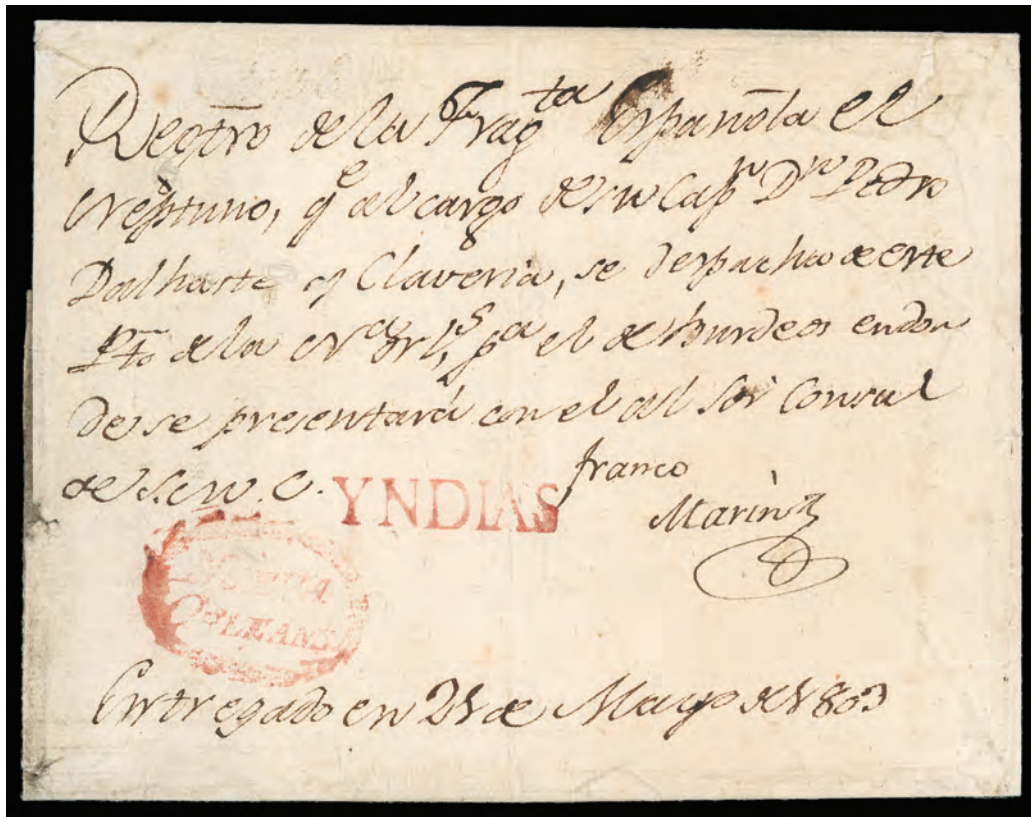 Regtrō de la Fragta Española el
Neptuno, qe al cargo de su Capn Dn Pedro
Dalhaste y Claveria, se despacha de este
Pto de la Na Orls pa el de Burdeos endon
de se presentará con el al Sōr Consul
de S. M. C.
franco
YNDIAS
Marin
NUEVA
ORLEANS
Entregado en 21 de Mayo de 1803